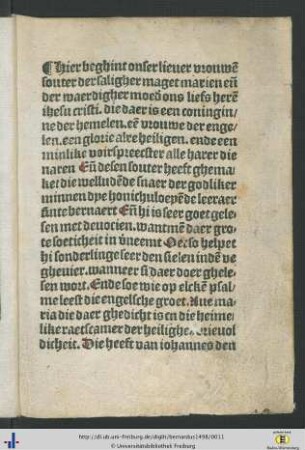 ¶ Hier beghint onser liever vrouwē
souter der saligher maget marien eñ
der waerdigher moed ons liefs herē
ihesu cristi. die daer is een coningin
ne der hemelen. eē vrouwe der enge
len. een glorie alre heiligen. ende een
minlike voirspreester alle harer die
naren Eñ desen souter heeft ghema
ket die welludēde snaer der godliker
minnen dye honichvloepēde leeraer
sinte bernaert Eñ hi is seer goet gelesen
sen met devocien. want mē daer gro
te soeticheit in vneemt Oec so helpet
hi sonderlinge seer den sielen indē ve
ghevier. wanneer si daer doer ghele
sen wort. Ende soe wie op elckē psal
me leest die engelsche groet. Aue ma
ria die daer ghedicht is en die heime
like raetscamer der heilighe drieuol
dicheit. Die heeft van iohannes den
http://dl.ub.uni-freiburg.de/diglit/bernardus1498/0011
© Universitätsbibliothek Freiburg